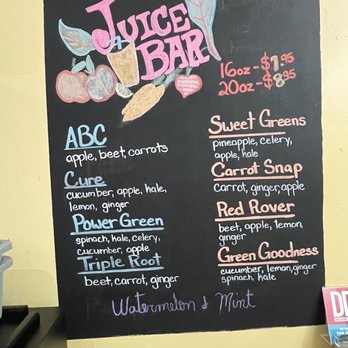 JUICE
BAR
16oz - $7.95
20oz - $8.95
ABC
apple, beet, carrots
Cure
cucumber, apple, kale,
lemon, ginger
Power Green
spinach, kale, celery,
cucumber, apple
Triple Root
beet, carrot, ginger
Sweet Greens
pineapple, celery,
apple, kale
Carrot Snap
carrot, ginger, apple
Red Rover
beet, apple, lemon
ginger
Green Goodness
cucumber, lemon, ginger
spinach, kale
Watermelon & Mint